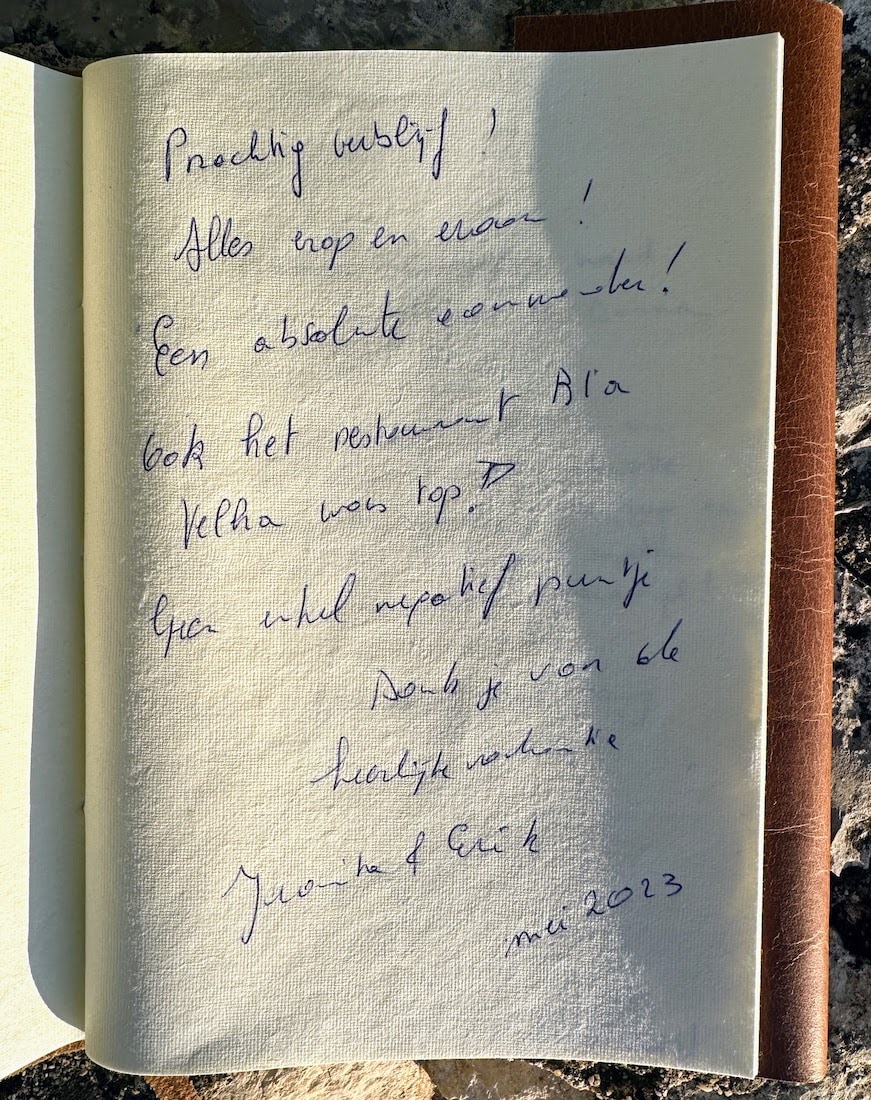 Prachtig verblijf !
Alles erop en eraan !
Een absolute aanrader !
Ook het restaurant Ria
Velha was top !
Geen enkel negatief puntje
Dank je van de
heerlijke vakantie
& Erik
mei 2023